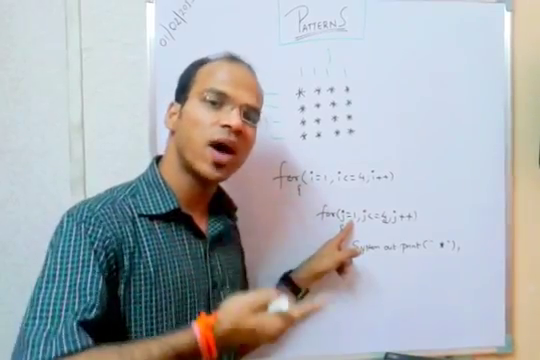 PATTERNS
* * * *
* * * *
* * * *
* * * *
for(i=1, i<=4, i++)
{
for(j=1, j<=4, j++)
{
System out print(" * "),